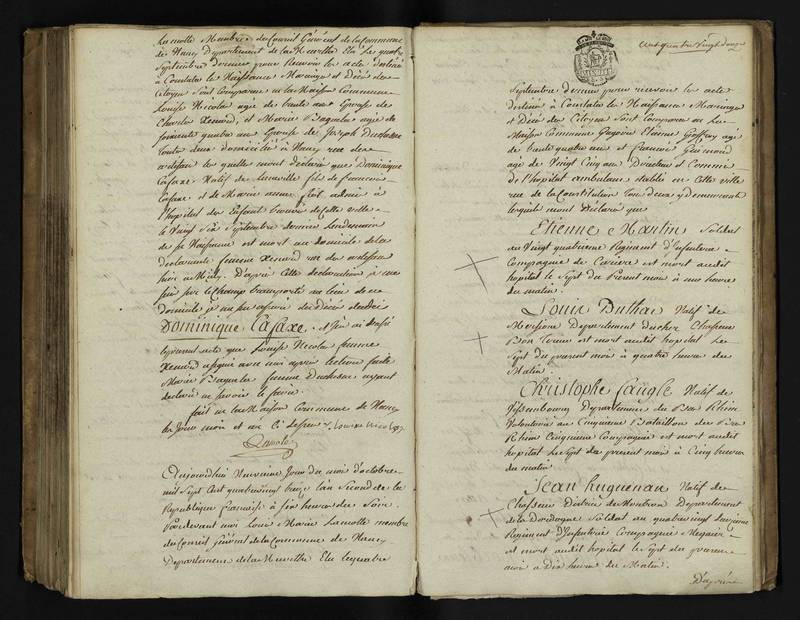 Lamotte Membre du Conseil Général de la Commune
de Nancy Departement de la Meurthe Elu le quatre
Septembre dernier pour Recevoir les acte destiné
à Constater les Naissance Mariage et Décé des
Citoyen Sont Comparue en la Maison Commune
Louise Nicolas agé de trente ans Epouse de
Charles Xenard, et Marie Baguelet agée de
soixante quatre ans Epouse de Joseph Duchesne
toute deux domicilié à Nancy rue des
ardesian les quelle m'ont déclaré que Dominique
Lafaxe Natif de Luneville fils de francois
Lafaxe et de Marie anne admis à
l'hopital des Enfants trouvé de Cette ville
le Vingt Six Septembre dernier lendemain
de sa Naissance est mort au domicile de la
déclarante femme Xenard rue des ardesian
hier à Midy. D'après Cette déclaration je me
suis sur le Champ transporté au lieu de ce
domicile je me suis assuré du Décé dudit
Dominique Lafaxe, et j'en ai dressé
le présent acte que Louise Nicolas femme
Xenard a signé avec moi après lecture faite
Marie Baguelet femme Duchesne ayant
déclaré ne savoir le faire.
fait en la Maison Commune de Nancy
les Jour mois et an Ci dessus. Louise Nicolas
Lamotte
Aujourdhui Neuvieme Jour du mois d'octobre
mil Sept Cent quatre vingt treize l'an Second de la
Republique française à six heures du Soir.
Pardevant moi Louis Marie Lamotte membre
du Conseil Général de la Commune de Nancy
Departement de la Meurthe Elu le quatre
Cent quatre Vingt douze
Septembre dernier pour recevoir les acte
destiné à Constater les Naissance Mariage
et Décé des Citoyen Sont Comparue en la
Maison Commune Grégoire Etienne Geoffroy agé
de trente quatre ans et francois Guimond
agé de Vingt Cinq ans Directeur et Commis
de l'hopital ambulant établi en Cette ville
rue de la Constitution tous deux y demeurant
lesquels m'ont Déclaré que
Etienne Martin Soldat
au Vingt quatrieme Regiment d'Infanterie
Compagnie de est mort audit
hopital le Sept du Présent mois à une heure
du matin.
Louis Duthac Natif de
Departement du cher Chasseur
est mort audit hopital le
Sept du présent mois à quatre heures du
Matin.
Christophe Caugle Natif de
Vissembourg Departement du Bas Rhin
Volontaire au Cinquieme Bataillon du
Rhin Cinquieme Compagnie est mort audit
hopital le Sept du présent mois à Cinq heures
du matin
Jean huguenau Natif de
District de Montron Departement
de la Dordogne Soldat au quatre vingt
Regiment d'Infanterie Compagnie
est mort audit hopital le Sept du présent
mois à Dix heures du Matin.
D'après